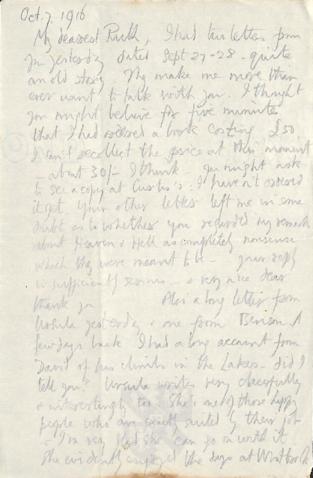 Oct. 7. 1916
My dearest Ruth, I had two letters from
you yesterday dated Sept 27-28. quite
an old story. They make me more than
ever want to talk with you. I thought
you might believe for five minutes
that I had ordered a book costing £50.
I can't recollect the price at this moment
about 30/- I think. You might ask
to see a copy at Curtis's. I haven't ordered
it yet. Your other letter left me in some
doubt as to whether you regarded my remark
about Heaven & Hell as completely nonsense
which they were meant to be - your reply
is sufficiently serious - & very nice dear
thank you Also a long letter from
Ursula yesterday & one from Benson. A
few days back I had a long account from
David of his climbs in the Lakes - did I
tell you? Ursula writes very cheerfully
& interestingly too. She's one of those happy
people who are exactly suited by their job
& I'm very glad she can go on with it
She evidently enjoyed the days at